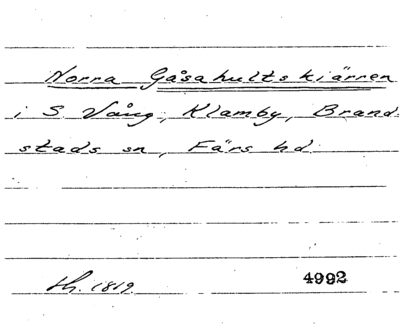 Norra Gåsahultskiärren
i S Vång, Klamby, Brand-
stads sn, Färs hd
sth. 1819. 4992